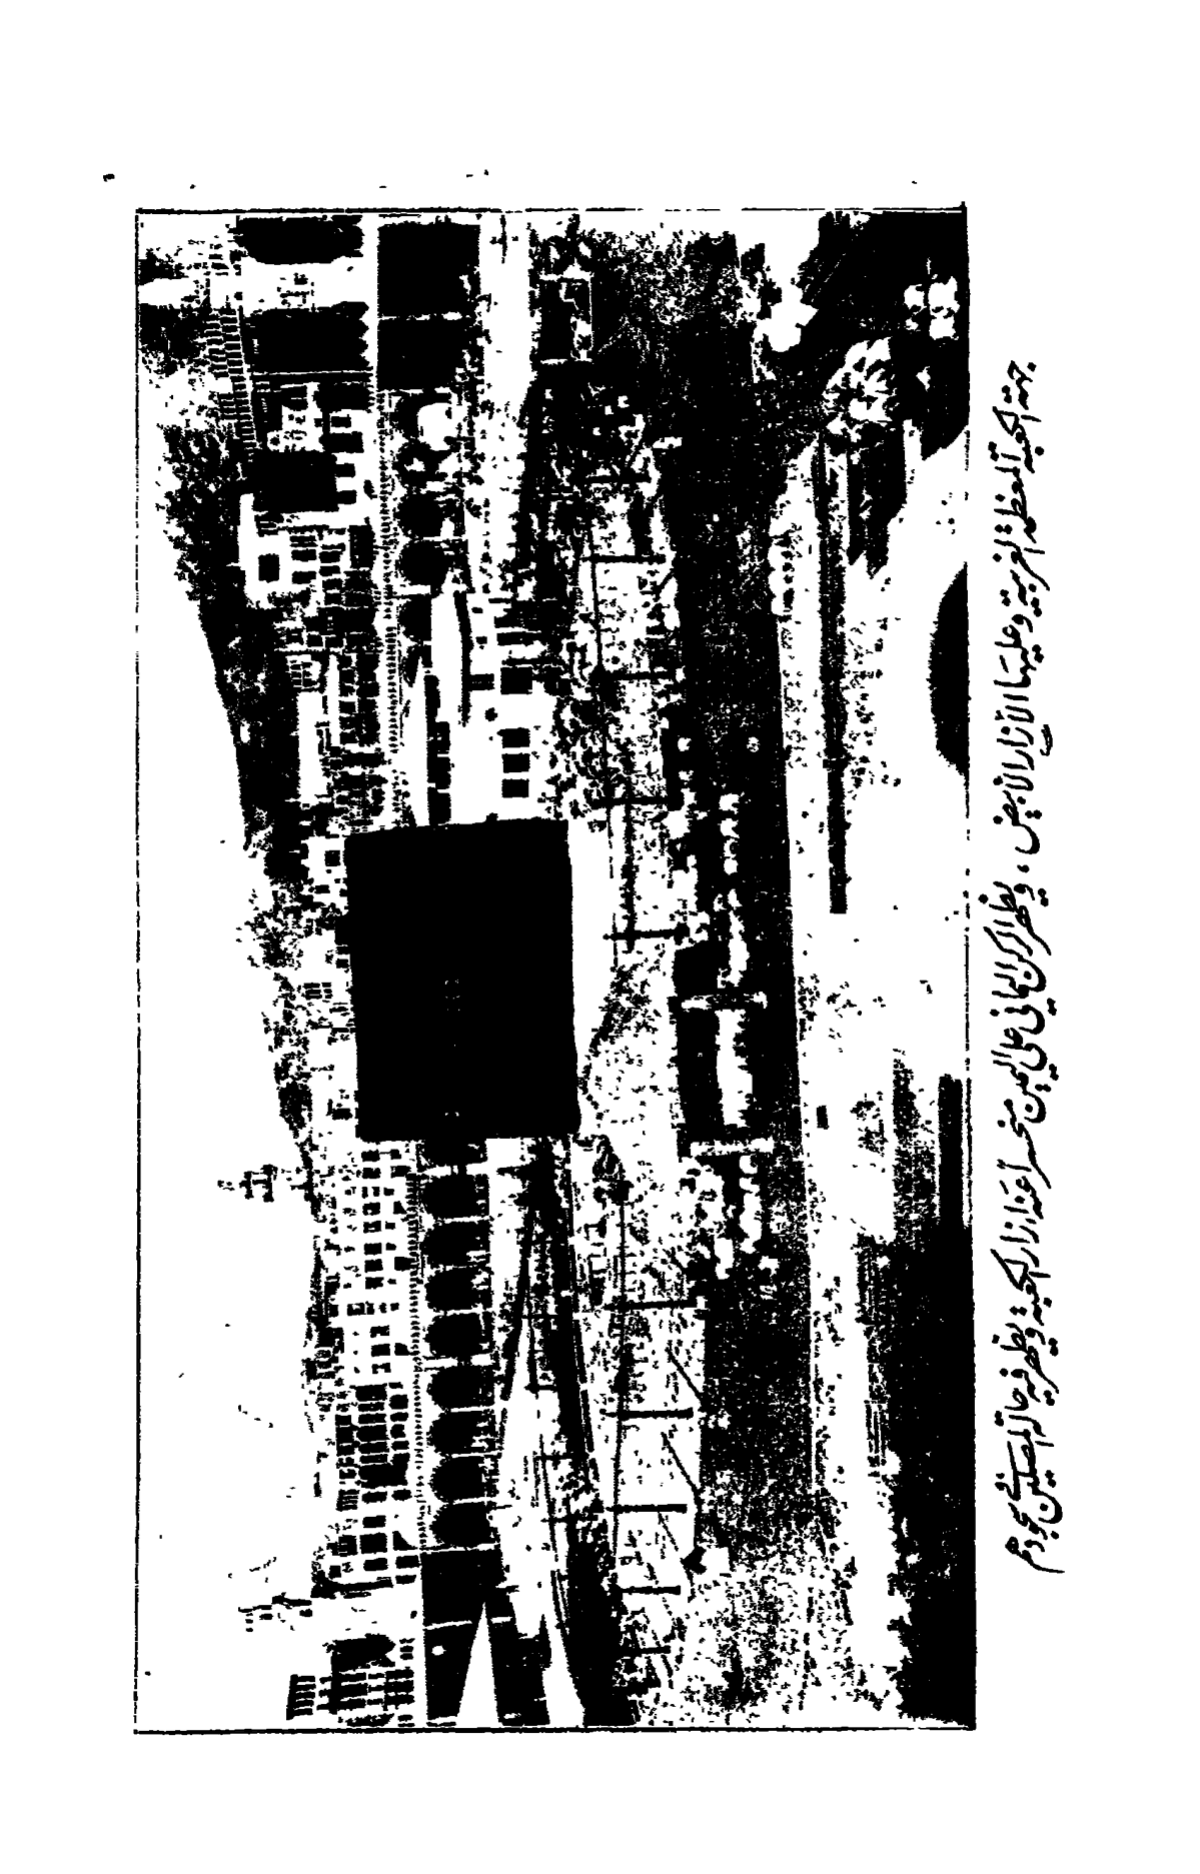 جهة الكعبة المعظمة الغربية وعليها الازار الابيض ، ويظهر الركن اليماني على اليمين منحسرا عنه ازار الكعبة ويظهر فيه حالة المصلين في سجودهم